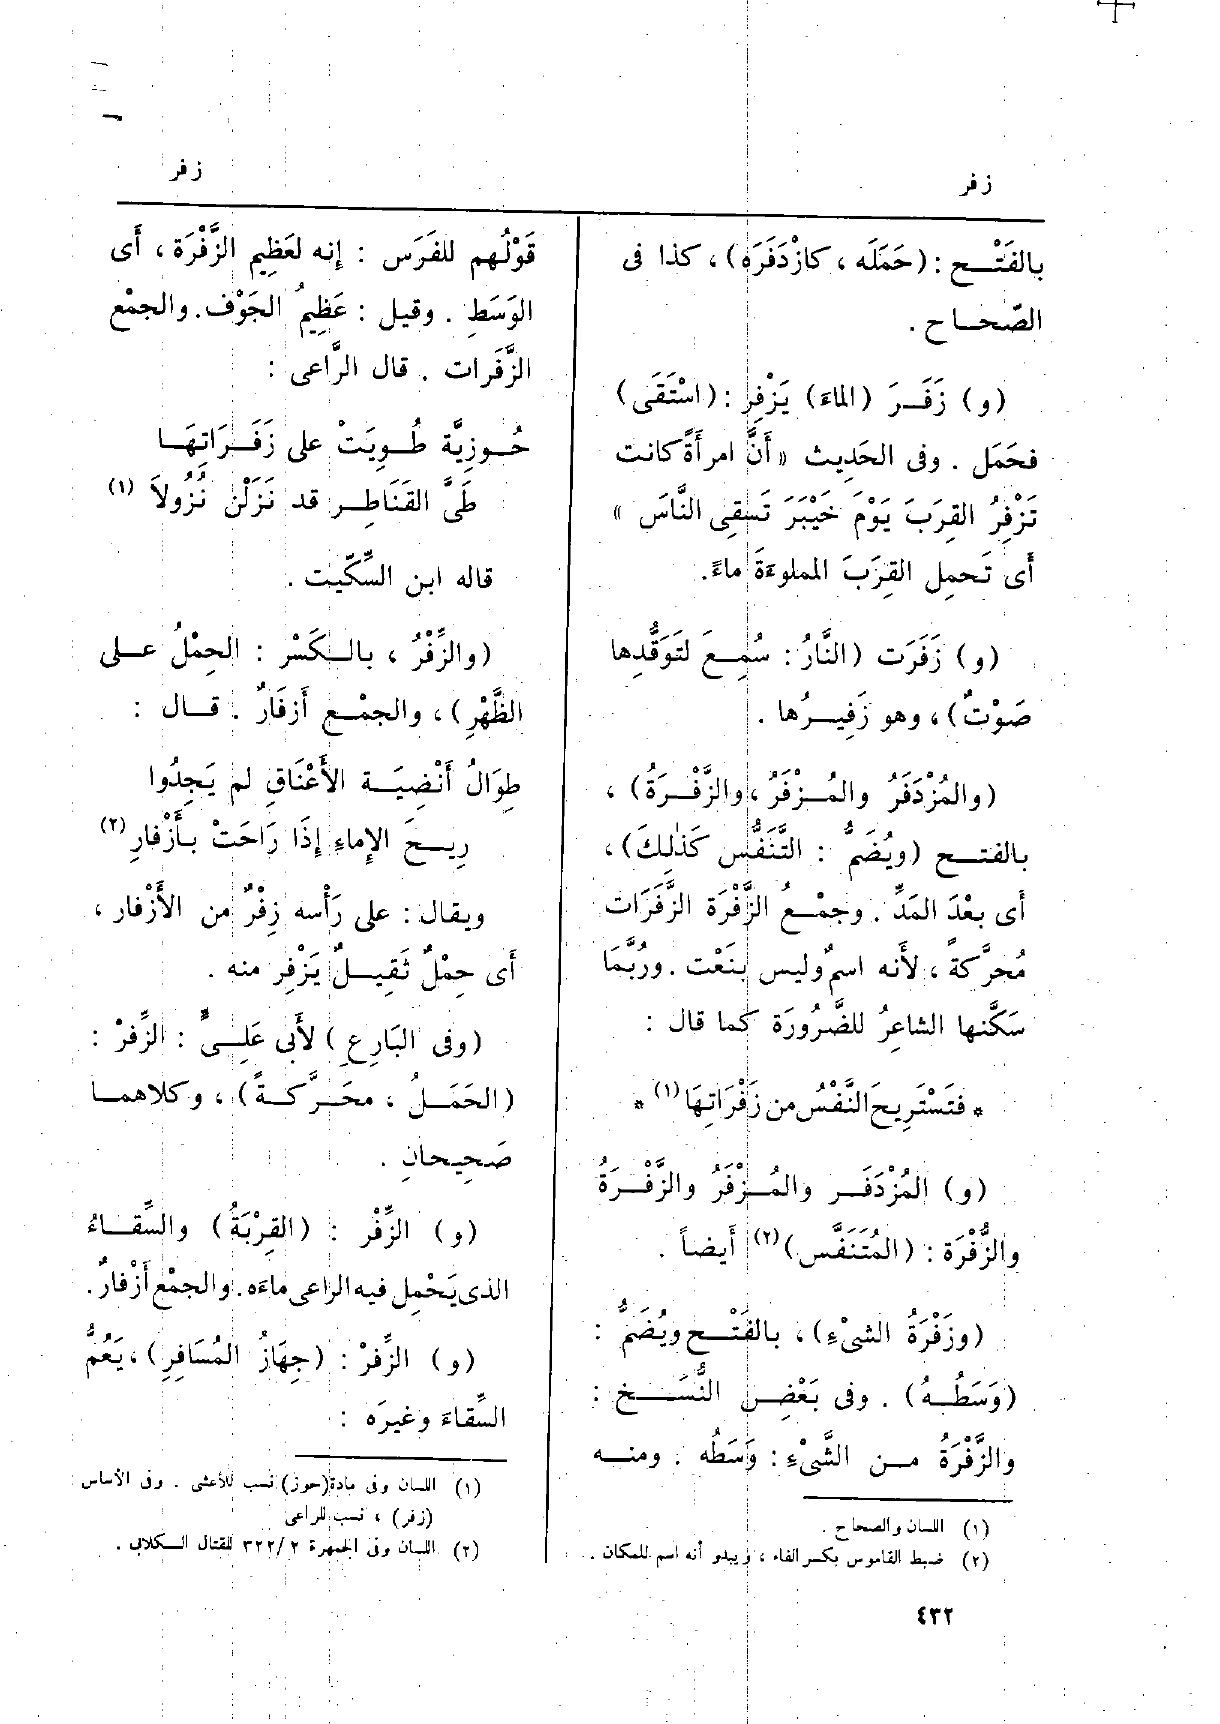 زفر
زفر
بالفَتْح : (حَمَلَه ، كازْدَفَرَه) ، كذا فى
الصّحاح .
(و) زَفَرَ (الماءَ) يَزْفِر : (اسْتَقَى)
فحَمَل . وفى الحَدِيث « أَنَّ امرأَةً كانت
تَزْفِرُ القِرَبَ يَوْمَ خَيْبَرَ تَسقِى النَّاسَ »
أَى تَحمِل القِرَبَ المملوءَةَ ماءً.
(و) زَفَرَت (النَّارُ : سُمِعَ لتَوَقُّدِها
صَوْتٌ) ، وهو زَفِيرُها .
(والمُزْدَفَرُ والمُزْفَرُ ، والزَّفْرَةُ) ،
بالفتح (ويُضَمُّ : التَّنَفُّس كَذٰلِكَ) ،
أَى بعْدَ المَدِّ . وجمْعُ الزَّفْرَة الزَّفَرَات
مُحرَّكةً ، لأَنه اسمٌ وليس بنَعْت . ورُبَّمَا
سَكَّنها الشاعِرُ للضَّرُورَة كما قال :
* فتَسْتَرِيحَ النَّفْسُ من زَفْرَاتِهَا (١) *
(و) المُزْدَفَر والمُزْفَرُ والزَّفْرَةُ
والزُّفْرَة : (المُتَنَفَّس) (٢) أَيضاً .
(وزَفْرَةُ الشىْءِ) ، بالفَتْح ويُضَمُّ :
(وَسَطُهُ) . وفى بَعْضِ النُّسَخ :
والزَّفْرَةُ من الشَّىْءِ : وَسَطُه . ومنه
(١) اللسان والصحاح .
(٢) ضبط القاموس بكسر الفاء ، ويبدو أنه اسم للمكان .
قَوْلُهم للفَرَس : إنه لعَظِيم الزَّفْرَة ، أَى
الوَسَطِ . وقيل : عَظِيمُ الجَوْف . والجمْع
الزَّفَرات . قال الرَّاعى :
حُوزِيَّة طُوِيَتْ على زَفَرَاتِهَا
طَىَّ القَنَاطِرِ قد نَزَلْنَ نُزُولاَ (١)
قاله ابن السِّكِّيت .
(والزِّفْرُ ، بالكَسْر : الحِمْلُ على
الظَّهْرِ) ، والجمْع أَزفَارٌ . قال :
طِوَالُ أَنْضِيَة الأَعْنَاقِ لم يَجِدُوا
رِيحَ الإماءِ إذَا رَاحَتْ بأَزْفارِ (٢)
ويقال : على رَأْسه زِفْرٌ من الأَزْفار ،
أَى حِمْلٌ ثَقِيلٌ يَزْفِر منه .
(وفى البَارِعِ) لأَبى عَلِىٍّ : الزِّفرْ :
(الحَمَلُ ، محَرَّكةً) ، وكلاهما
صَحِيحانِ .
(و) الزِّفْر : (القِرْبَةُ) والسِّقاءُ
الذى يَحْمِل فيه الراعى ماءَه . والجمْع أَزْفارٌ .
(و) الزِّفرْ : (جِهَازُ المُسَافِرِ) ، يَعُمُّ
السِّقاءَ وغيرَه :
(١) اللسان وفى مادة (حوز) نسب للأعشى . وفى الأساس
(زفر) ، نسب للراعى
(٢) اللسان وفى الجمهرة ٣٢٢/٢ للقتال الكلابى .
٤٣٢